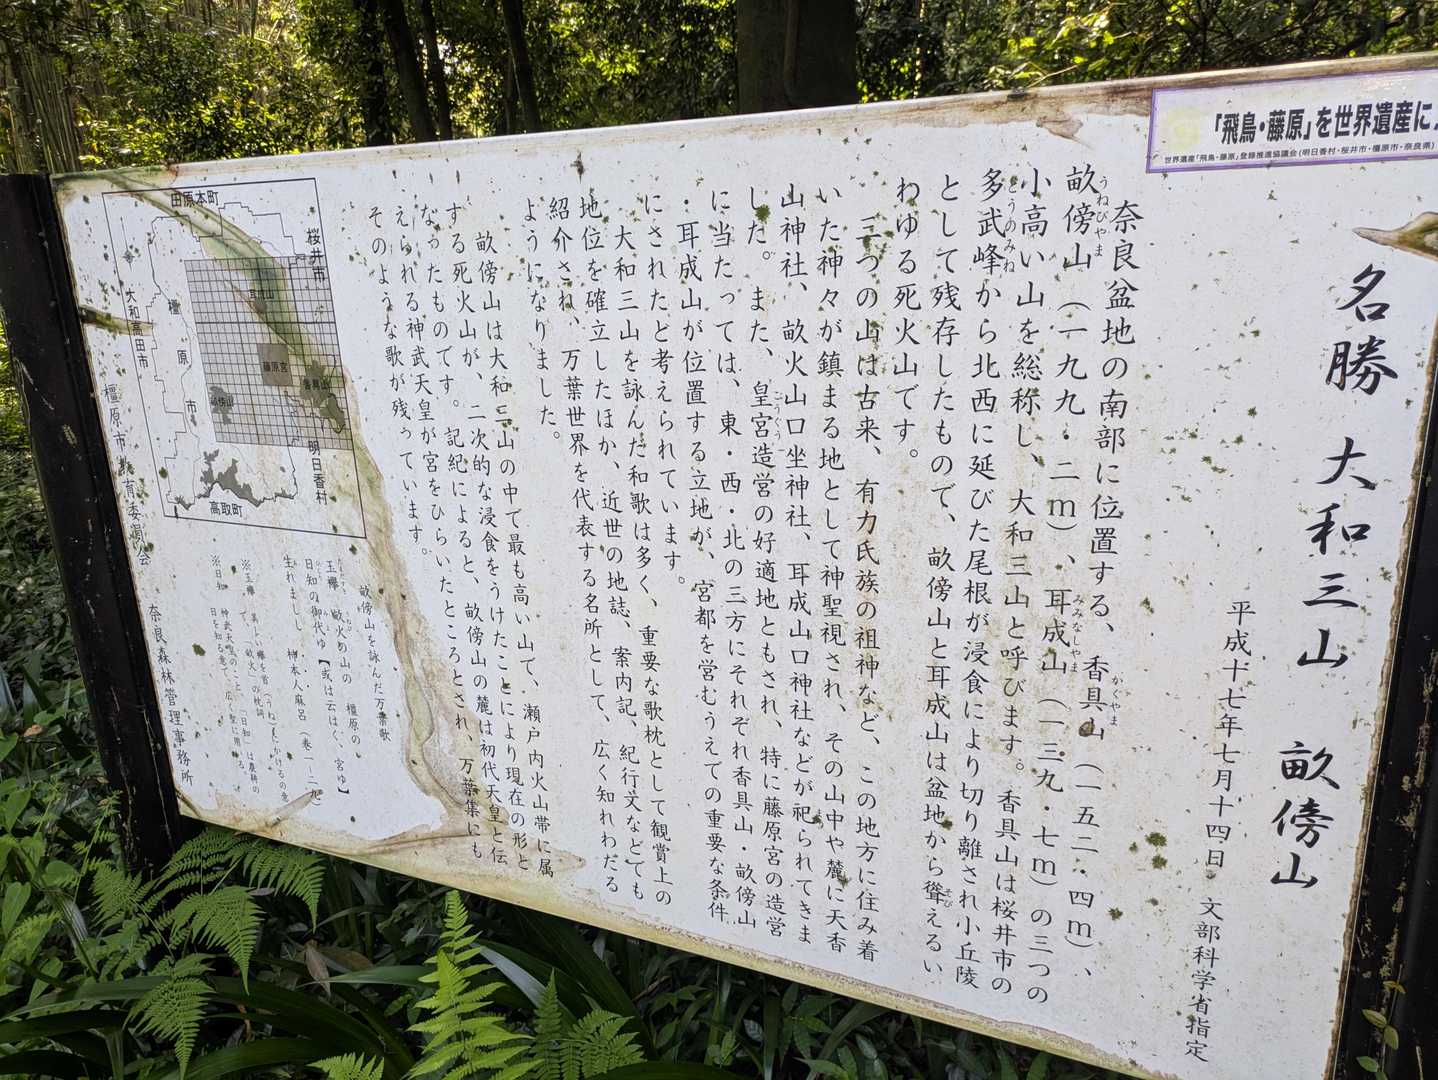 「飛鳥・藤原」を世界遺産に
世界遺産「飛鳥・藤原」登録推進協議会(明日香村・桜井市・橿原市・奈良県)
名勝 大和三山 畝傍山
平成十七年七月十四日 文部科学省指定
奈良盆地の南部に位置する、香具山(一五二・四m)、
かぐやま
畝傍山(一九九・二m)、耳成山(一三九・七m)の三つの
うねびやま
みみなしやま
小高い山を総称し、大和三山と呼びます。香具山は桜井市の
多武峰から北西に延びた尾根が浸食により切り離され小丘陵
とうのみね
として残存したもので、畝傍山と耳成山は盆地から聳えるい
そび
わゆる死火山です。
三つの山は古来、有力氏族の祖神など、この地方に住み着
いた神々が鎮まる地として神聖視され、その山中や麓に天香
山神社、畝火山口坐神社、耳成山口神社などが祀られてきま
した。また、皇宮造営の好適地ともされ、特に藤原宮の造営
こうぐう
に当たっては、東・西・北の三方にそれぞれ香具山・畝傍山
・耳成山が位置する立地が、宮都を営むうえでの重要な条件
にされたと考えられています。
大和三山を詠んだ和歌は多く、重要な歌枕として観賞上の
地位を確立したほか、近世の地誌、案内記、紀行文などでも
紹介され、万葉世界を代表する名所として、広く知れわたる
ようになりました。
畝傍山は大和三山の中で最も高い山で、瀬戸内火山帯に属
する死火山が、二次的な浸食をうけたことにより現在の形と
なったものです。記紀によると、畝傍山の麓は初代天皇と伝
えられる神武天皇が宮をひらいたところとされ、万葉集にも
そのような歌が残っています。
田原本町
桜井市
大和高田市
橿原市
藤原宮
香具山
畝傍山
明日香村
高取町
畝傍山を詠んだ万葉歌
玉襷 畝火の山の 橿原の
日知の御代ゆ【或は云はく、宮ゆ】
生れましし・・・ 柿本人麻呂(巻一-二九)
※玉襷 美しい襷を首(うね)にかけるの意
で、「畝火」の枕詞。
※日知 神武天皇のこと。「日知」は農耕の
日を知る意で、広く聖に用いる。
橿原市教育委員会
奈良森林管理事務所